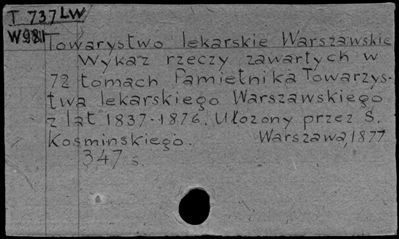 T 737 LW
W981
Towarystwo lekarskie Warszawskie
Wykaz rzeczy zawartych w
72 tomach Pamietnika Towarzys-
twa lekarskiego Warszawskiego
z lat 1837-1876. Ułozony przez S.
Kosminskiego. Warszawa, 1877
347 s.